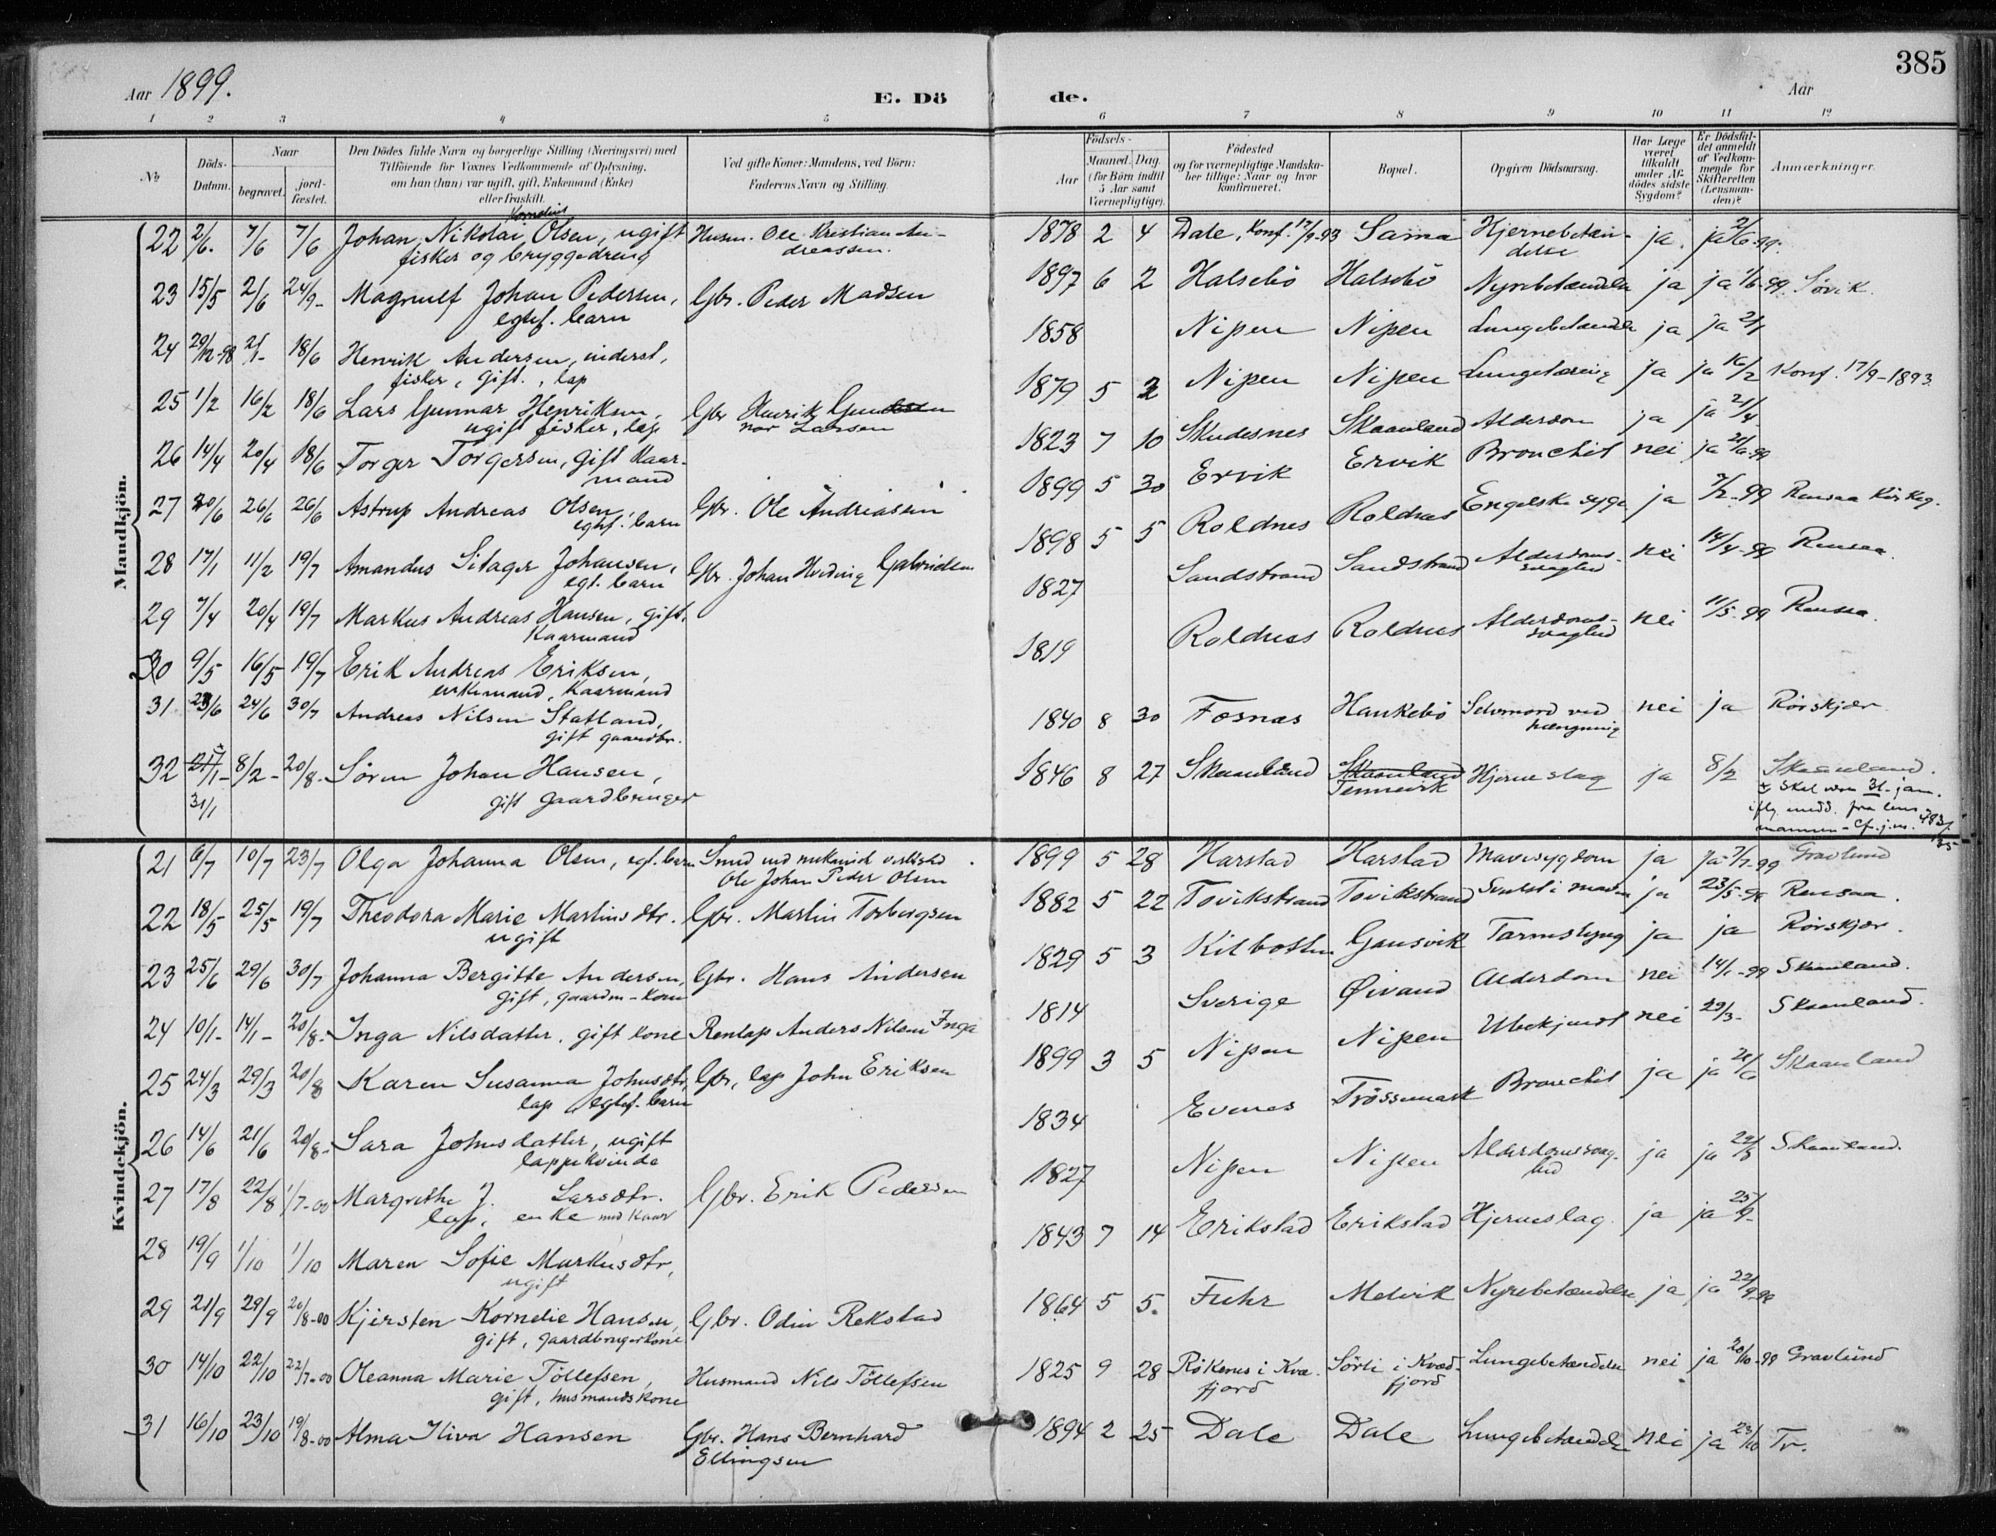 385
Aar 1899. E. Dö de. Aar
1 2 3 4 5 6 7 8 9 10 11 12
No.
Döds-Datum.
Naar
begravet.
jord-fæstet.
Den Dödes fulde Navn og borgerlige Stilling (Næringsvei) med
Tilföiende for Voxnes Vedkommende af Oplysning,
om han (hun) var ugift, gift, Enkemand (Enke)
eller fraskilt.
Ved gifte Koner: Mandens, ved Börn:
Faderens Navn og Stilling.
Födsels-
Aar Maaned. Dag.
(for Börn indtil
5 Aar samt
Værnepligtige).
Födested
og for værnepligtige Mandska-
ber tillige: Naar og hvor
konfirmeret.
Bopæl.
Opgiven Dödsaarsag.
Har Læge
været
tilkaldt
under Af-
dödes sidste
Sygdom?
Er Dödsfal-
det anmeldt
af Vedkom-
mende for
Skifteretten
(Lensman-
den)?
Anmærkninger.
Mandkjön.
Kornelius
22 2/6. 7/6 7/6 Johan Nikolai Olsen, ugift Husm. Ole Kristian An- 1878 2 4 Dale, Konf. 17/9-93 Sama Hjernebetæn- ja. ja 2/6-99.
fisker og bryggedreng dreassen. delse
23 15/5 2/6 24/9- Magnulf Johan Pedersen, Gbr. Peder Madsen 1897 6 2 Halsebö Halsebö Nyrebetændelse ja ja 1/6-99. Sövik.
egtef. barn
24 29/12-98 2/1- 18/6 Henrik Andersen, inderst, 1858 Nipen Nipen Lungebetændelse ja ja 2/1
fisker, gift., lap
25 1/2 16/2 18/6 Lars Gunnar Henriksen, Gbr Henrik Gun 1879 5 2 Nipen Nipen Lungetæring ja ja 16/2 Konf. 17/9-1893.
ugift fisker, lap nar Larsen
26 14/4 20/4 18/6 Torger Torgersen, gift Kaar- 1823 7 10 Skudesnes Skaanland Alderdom ja ja 21/4
mand
27 20/6 26/6 26/6 Astrup Andreas Olsen Gbr. Ole Andreassen 1899 5 30 Ervik Ervik Bronchit nei ja 21/6-99
egtef. barn
28 17/1 11/2 19/7 Amandus Sitager Johansen, Gbr. Johan Hveding Gabrielsen 1898 5 5 Roldnes Roldnes Engelske syge ja 7/2-99 Rensaa Kirkeg.
egt. barn
29 7/4 20/4 19/7 Markus Andreas Hansen, gift, 1827 Sandstrand Sandstrand Alderdoms- nei 14/4-99 Rensaa.
Kaarmand svaghed
30 9/5 16/5 19/7 Erik Andreas Eriksen, 1819 Roldnes Roldnes Alderdoms- nei 11/5-99 Rensaa.
enkemand, Kaarmand svaghed
31 23/6 24/6 30/7 Andreas Nilsen Statland, 1840 8 30 Fosnæs Haukebö Selvmord ved nei ja Rörskjær
gift gaardbr. hængning
32 21/1- 8/2- 20/8- Sören Johan Hansen, 1846 8 27 Skaanland Skaanland Hjerneslag ja 8/2 Skaanland.
31/1 gift gaardbruger Tennevik x skal være 31. jan.
iflg. medd. fra lens
mannen - Cf. j.nr. 483/35
Kvindekjön.
21 6/7 10/7 23/7 Olga Johanna Olsen, egt. barn Smed ved mekanisk verksted 1899 5 28 Harstad Harstad Mavesygdom ja ja 7/7-99 Gravlund
Ole Johan Peder Olsen
22 18/5 25/5 19/7 Theodora Marie Martinsdtr. Gbr. Martin Torbergsen 1882 5 22 Tovikstrand Tovikstrand Svulst i maven ja 23/5-99 Rensaa.
ugift
23 25/6 29/6 30/7 Johanna Bergitte Andersen, Gbr. Hans Andersen 1829 5 3 Kilbotten Gansvik Tarmslyng ja ja Rörskjær.
gift, gaardm-kone
24 10/1- 14/1- 20/8- Inga Nilsdatter, gift kone Renlap Anders Nilsen Inga 1814 Sverige Öivand Alderdom nei 14/1-99 Skaanland.
25 24/3 29/3 20/8 Karen Susanna Johnsdtr, Gbr, lap John Eriksen 1899 3 5 Nipen Nipen Ubekjendt nei 29/3- Skaanland.
lap egtef. barn
26 14/6 21/6 20/8- Sara Johnsdatter, ugift 1834 Evenes Trössemark Bronchit ja ja 21/6 Skaanland
lappekvinde
27 17/8 22/8 1/7-00 Margrethe J. Larsdtr. Gbr. Erik Pedersen 1827 Nipen Nipen Alderdomssvag- ja ja 22/8 Skaanland.
lap, enke med Kaar hed
28 19/9 1/10 1/10 Maren Sofie Markusdtr, 1843 7 14 Erikstad Erikstad Hjerneslag. ja ja 25/9-
ugift
29 21/9 29/9 20/8-00 Kjersten Kornelie Hansen, Gbr. Odin Rekstad 1864 5 5. Fuhr Melvik Nyrebetændelse ja ja 22/9-99
gift, gaardbrugerkone
30 14/10 22/10 22/7-00 Oleanna Marie Töllefsen, Husmand Nils Töllefsen 1825 9 28 Rökenes i Kvæ- Sörli i Kvæd- Lungebetændelse nei ja 20/10-99 Gravlund
gift, husmandskone fjord fjord
31 16/10 23/10 19/8-00 Alma Hansen Gbr. Hans Bernhard 1894 2 25 Dale Dale Lungebetændelse nei ja 23/10 Tr.
Ellingsen